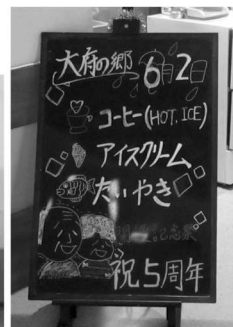 大府の郷 6月2日
コーヒー(HOT, ICE)
アイスクリーム
たいやき
祝5周年